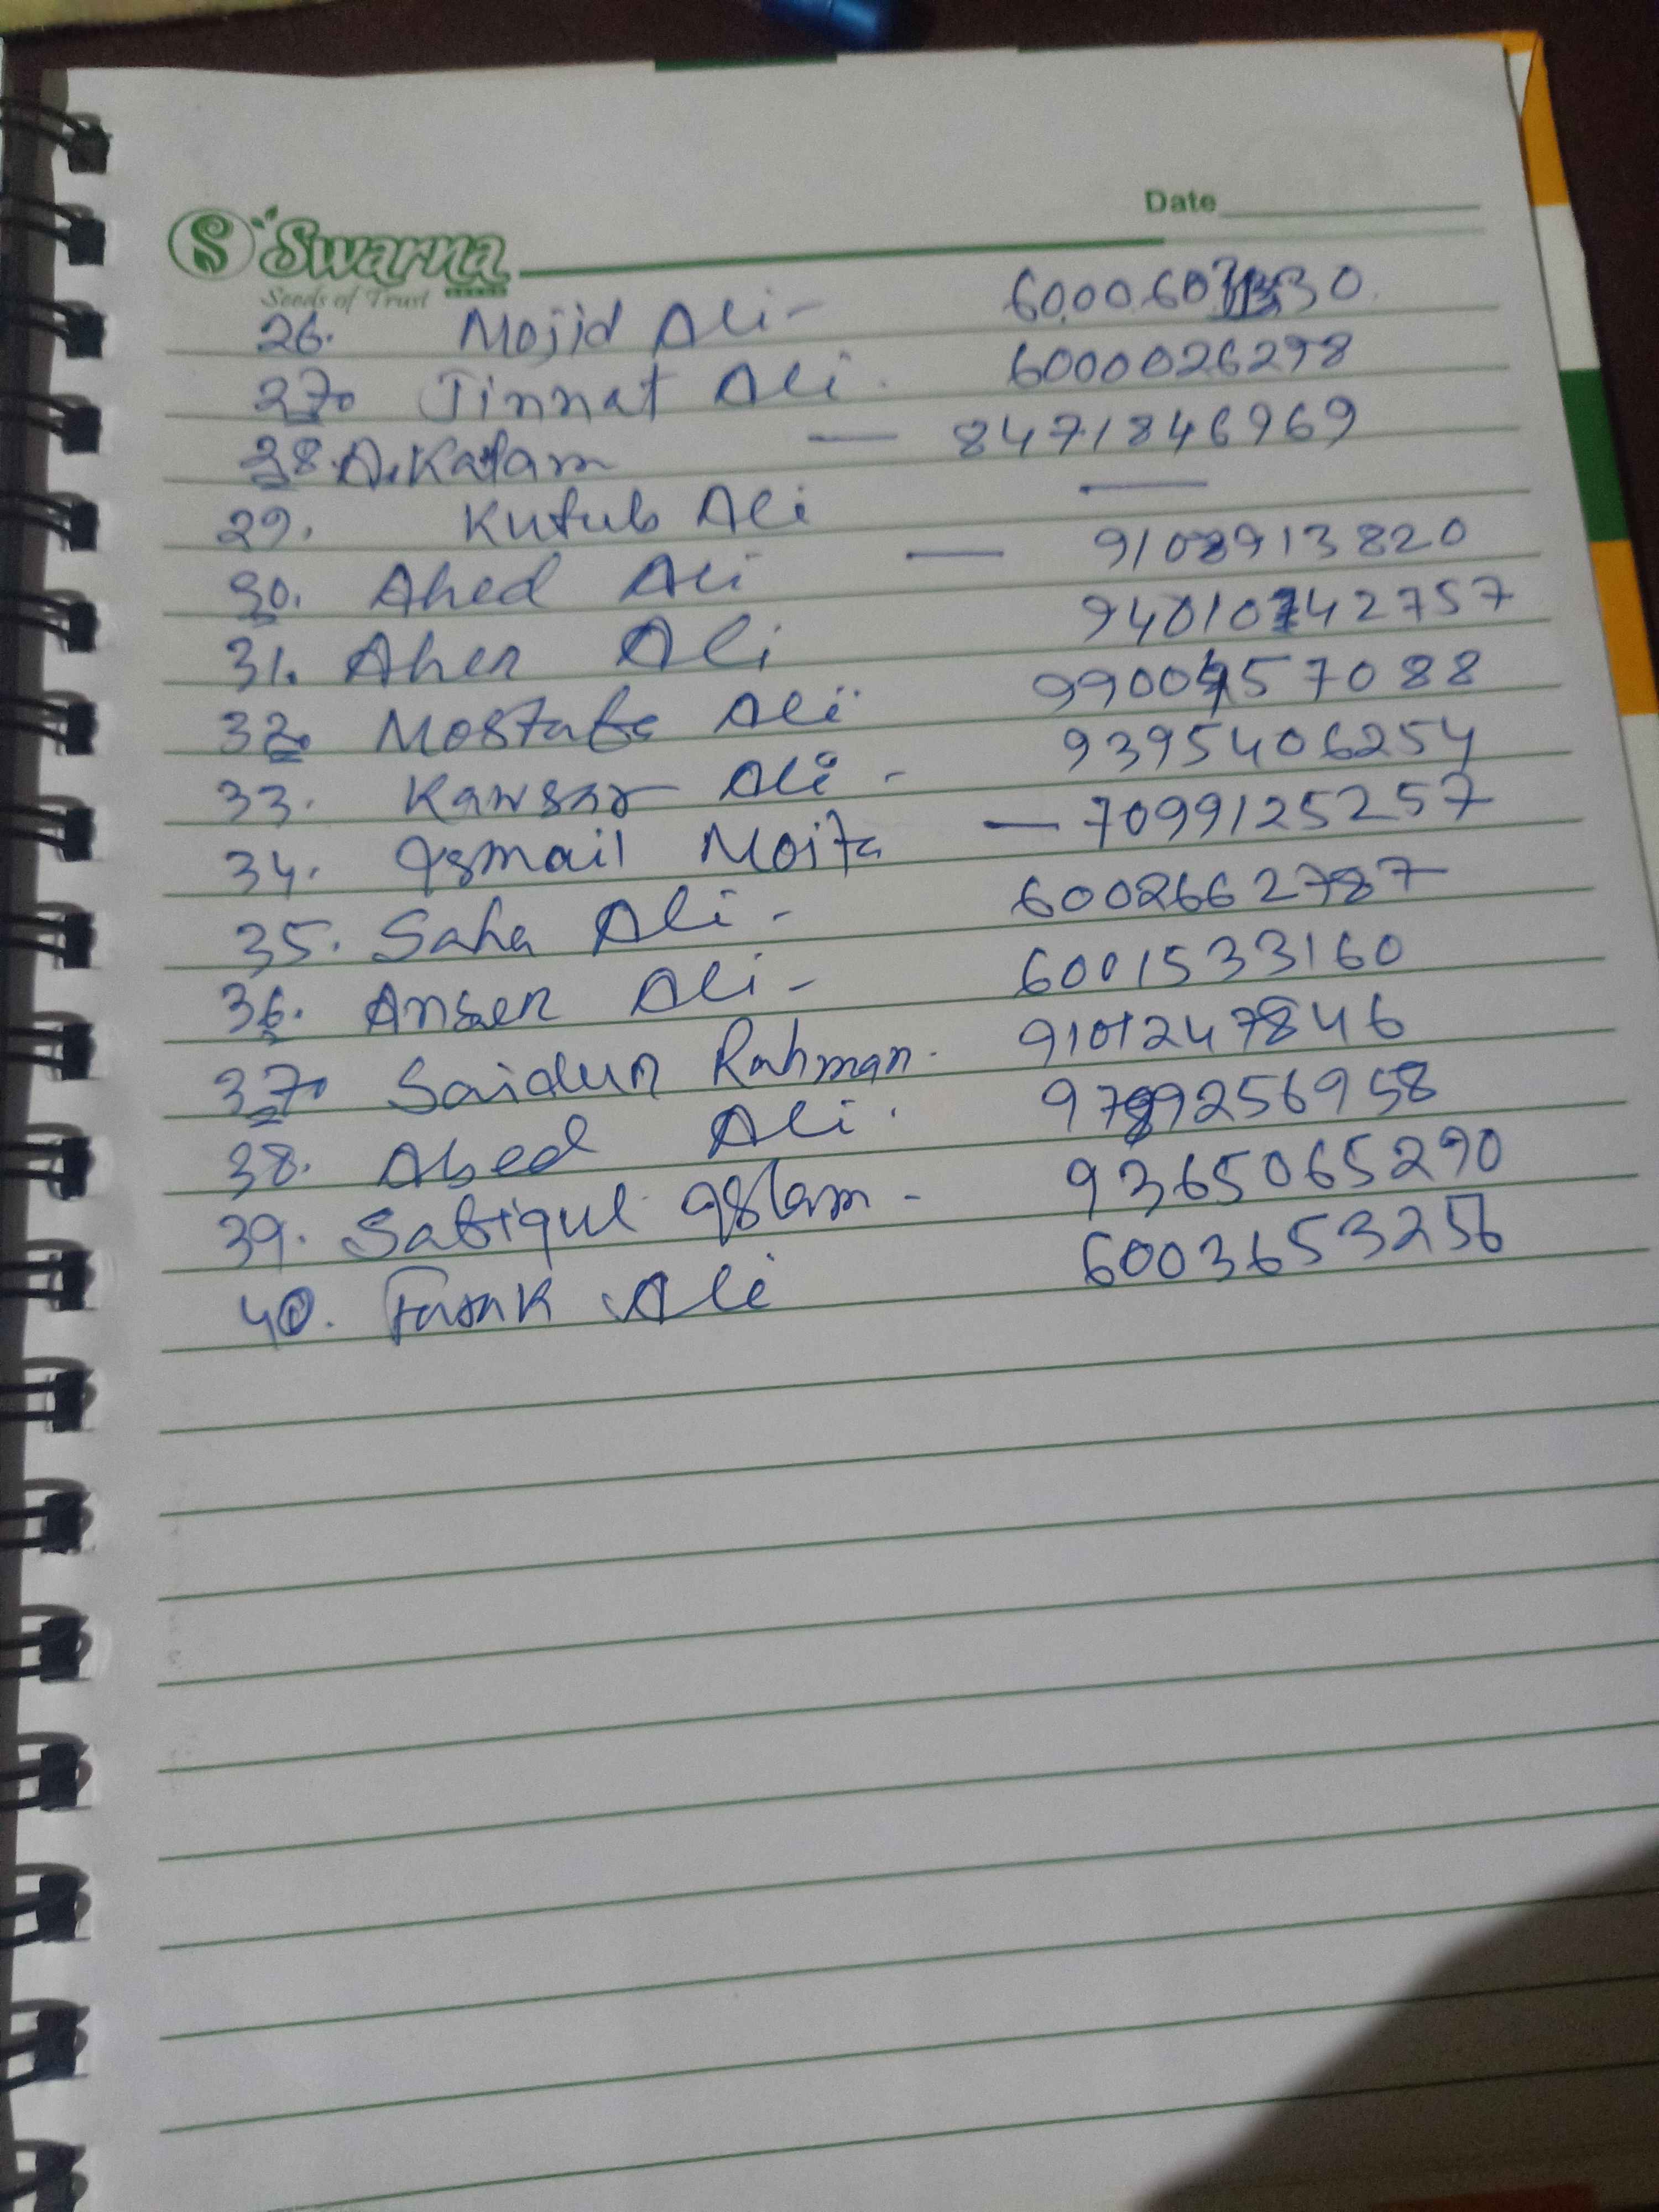 Date
S Swarna
Seeds of Trust
26. Mojid Ali - 600060 30
27. Jinnat Ali. 6000026298
28. A. Kalam — 8471846969
29. Kutub Ali —
30. Ahed Ali — 9108913820
31. Aher Ali 94010742757
32. Mostafa Ali 9900457088
33. Kawsar Ali - 9395406254
34. Ismail Molla — 7099125257
35. Saha Ali - 6002662787
36. Anser Ali - 6001533160
37. Saidur Rahman. 9101247846
38. Abed Ali. 256958
39. Safiqul Islam - 9365065290
40. Faruk Ali 6003653256